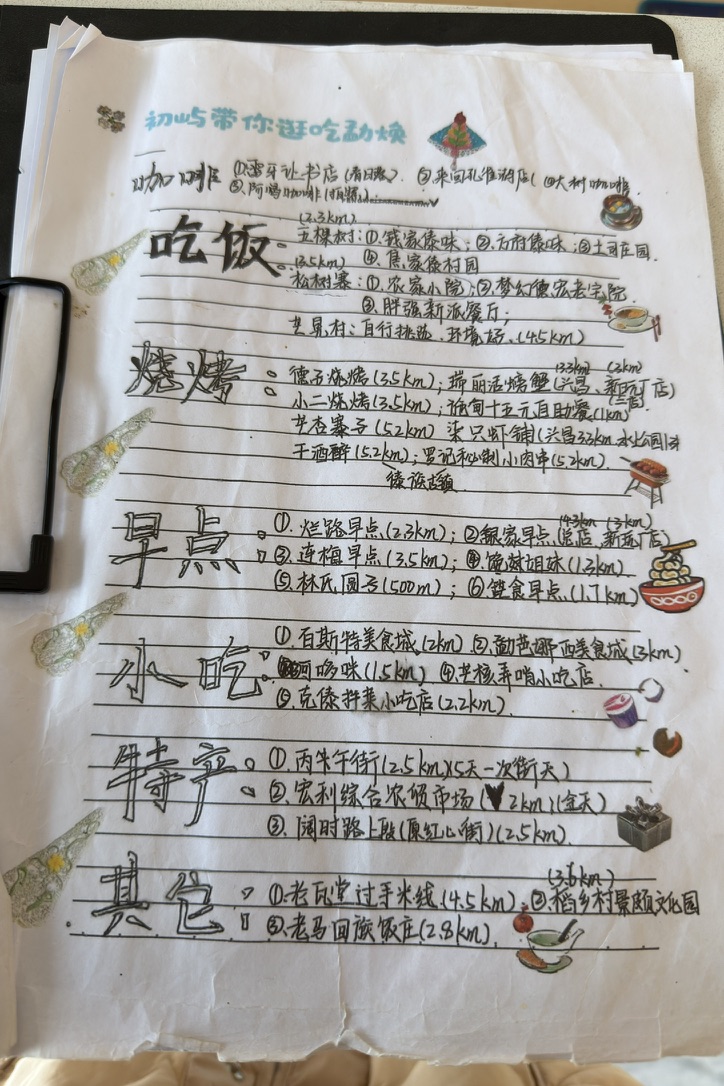 初屿带你逛吃勐焕
咖啡 ①雷牙让书店(看日落). ③来回孔雀湖店( ④大树咖啡.
②.阿鸣咖啡
(2.3km)
吃饭 五棵树:①.钱家傣味;②.方府傣味;③土司庄园.
④.焦家傣村园
(3.5km)
松树寨:①.农家小院;②.梦幻德宏老宅院.
③.胖强新派餐厅;
芒见村:自行挑选,环境好.(4.5km)
(3.3km) (3km)
烧烤: 德子烧烤(3.5km);瑞丽活螃蟹(兴昌、新玩厂店)
小二烧烤(3.5km);伯甸十五元自助餐(1km)
芒杏寨子(5.2km) 柒只虾铺(兴昌3.3km
干酒醉(5.2km);罗记秘制小肉串(5.2km).
傣族古镇
(4.3km (3km)
早点: ①.烂路早点(2.3km);②银家早点.(总店、新玩厂店)
③.连梅早点(3.5km);④.豌菽姐妹(1.3km)
⑤.林氏圆子(500m);⑥.登食早点.(1.7km)
小吃: ①.百斯特美食城(2km) ②.勐巴娜西美食城(3km)
阿哆咪(1.5km) ④芒核弄哨小吃店.
⑤.克傣拌菜小吃店(2.2km)
特产: ①.丙午街(2.5km)(5天一次街天)
②.宏利综合农贸市场(2km)(全天)
③.阔时路上段(原红心街)(2.5km)
(3.6km)
其它: ①.老瓦堂过手米线.(4.5km) ②.稻乡村景颇文化园
③.老马回族饭庄(2.8km)